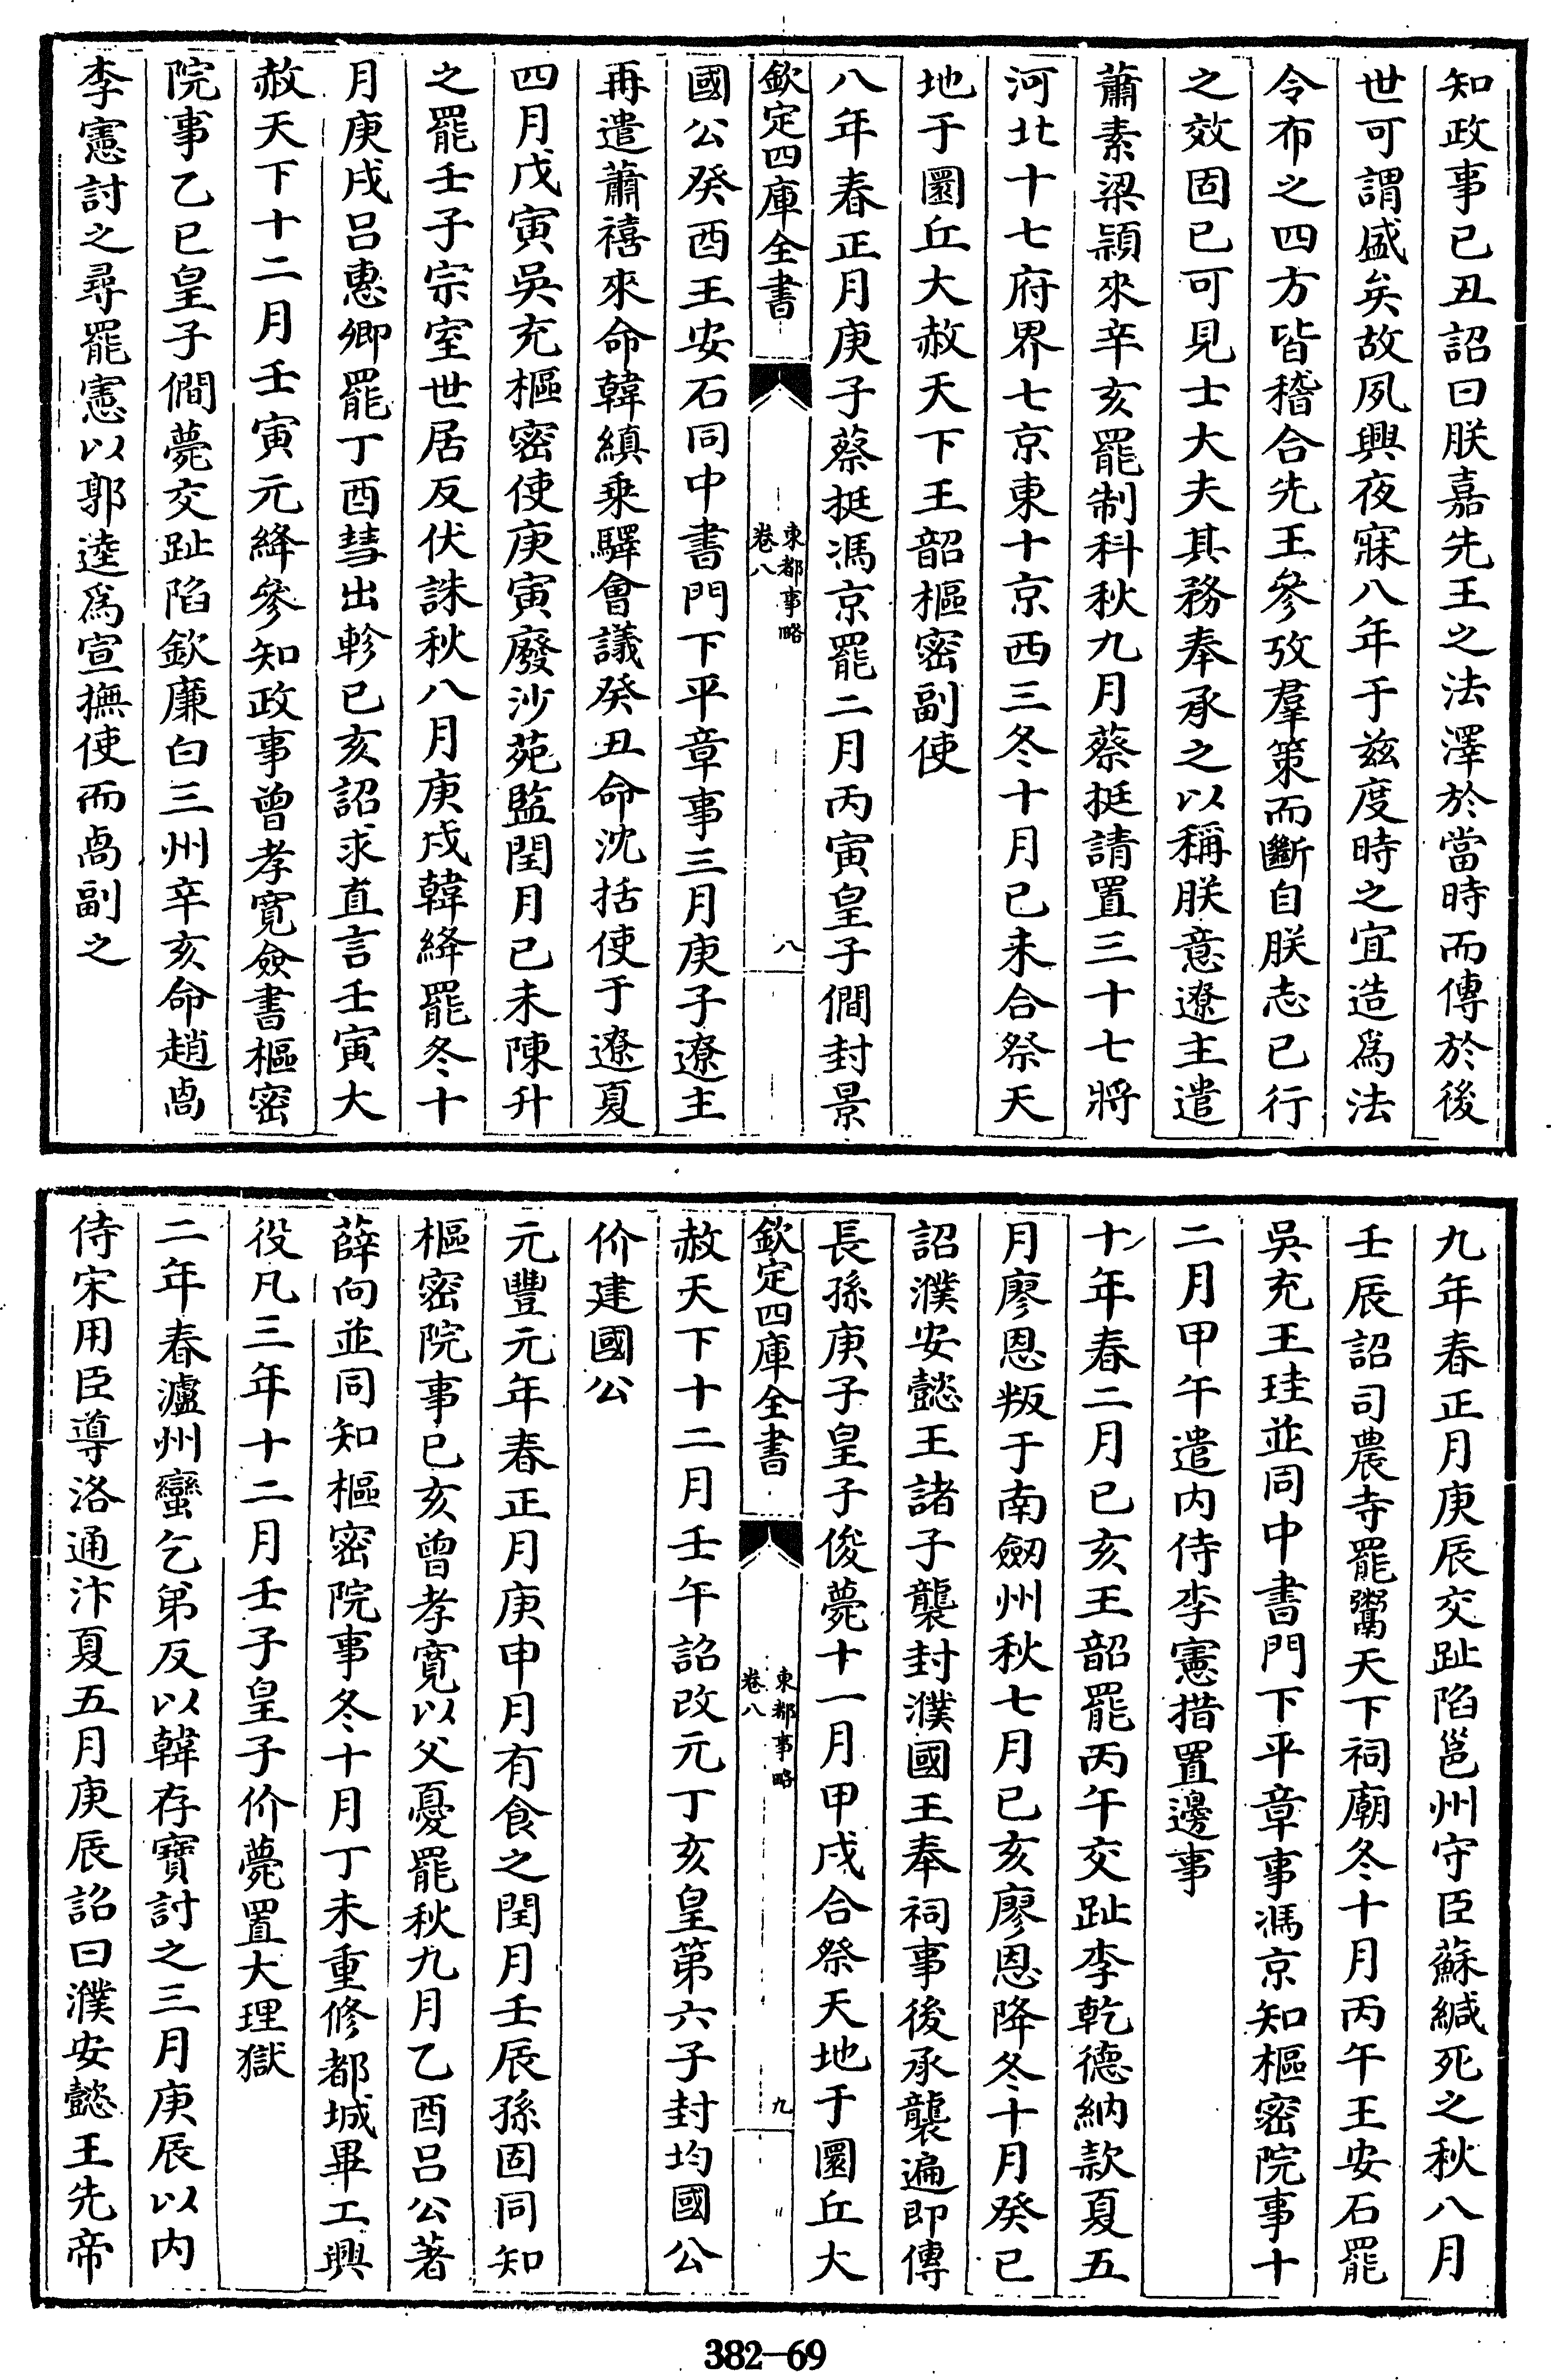 知政事己丑詔曰朕嘉先王之法澤於當時而傳於後
世可謂盛矣故夙興夜寐八年于兹度時之宜造爲法
令布之四方皆稽合先王參攷羣策而斷自朕志已行
之效固已可見士大夫其務奉承之以稱朕意遼主遣
蕭素梁穎來辛亥罷制科秋九月蔡挺請置三十七將
河北十七府界七京東十京西三冬十月己未合祭天
地于圜丘大赦天下王韶樞密副使
八年春正月庚子蔡挺馮京罷二月丙寅皇子僩封景
欽定四庫全書
東都事略
卷八
八
國公癸酉王安石同中書門下平章事三月庚子遼主
再遣蕭禧來命韓縝乘驛會議癸丑命沈括使于遼夏
四月戊寅吳充樞密使庚寅廢沙苑監閏月己未陳升
之罷壬子宗室世居反伏誅秋八月庚戌韓絳罷冬十
月庚戌呂惠卿罷丁酉彗出軫己亥詔求直言壬寅大
赦天下十二月壬寅元絳參知政事曾孝寛僉書樞密
院事乙巳皇子僩薨交趾陷欽廉白三州辛亥命趙卨
李憲討之尋罷憲以郭逵爲宣撫使而卨副之
九年春正月庚辰交趾陷邕州守臣蘇緘死之秋八月
壬辰詔司農寺罷鬻天下祠廟冬十月丙午王安石罷
吳充王珪並同中書門下平章事馮京知樞密院事十
二月甲午遣内侍李憲措置邊事
十年春二月己亥王韶罷丙午交趾李乾德納款夏五
月廖恩叛于南劒州秋七月己亥廖恩降冬十月癸巳
詔濮安懿王諸子襲封濮國王奉祠事後承襲遍即傳
長孫庚子皇子俊薨十一月甲戌合祭天地于圜丘大
欽定四庫全書
東都事略
卷八
九
赦天下十二月壬午詔改元丁亥皇第六子封均國公
价建國公
元豐元年春正月庚申月有食之閏月壬辰孫固同知
樞密院事己亥曾孝寛以父憂罷秋九月乙酉呂公著
薛向並同知樞密院事冬十月丁未重修都城畢工興
役凡三年十二月壬子皇子价薨置大理獄
二年春瀘州蠻乞弟反以韓存寶討之三月庚辰以内
侍宋用臣導洛通汴夏五月庚辰詔曰濮安懿王先帝
382—69